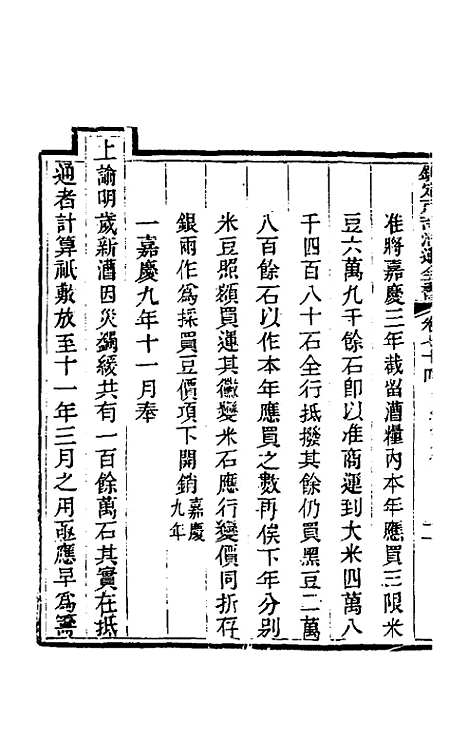 欽定戶部漕運全書 卷七十四
准將嘉慶三年截留漕糧內本年應買三限米
豆六萬九千餘石卽以准商運到大米四萬八
千四百八十石全行抵撥其餘仍買黑豆二萬
八百餘石以作本年應買之數再俟下年分別
米豆照額買運其黴變米石應行變價同折存
銀兩作為採買豆價項下開銷嘉慶九年
一嘉慶九年十一月奉
上諭明歲新漕因災蠲緩共有一百餘萬石其實在抵
通者計算祇敷放至十一年三月之用亟應早為籌